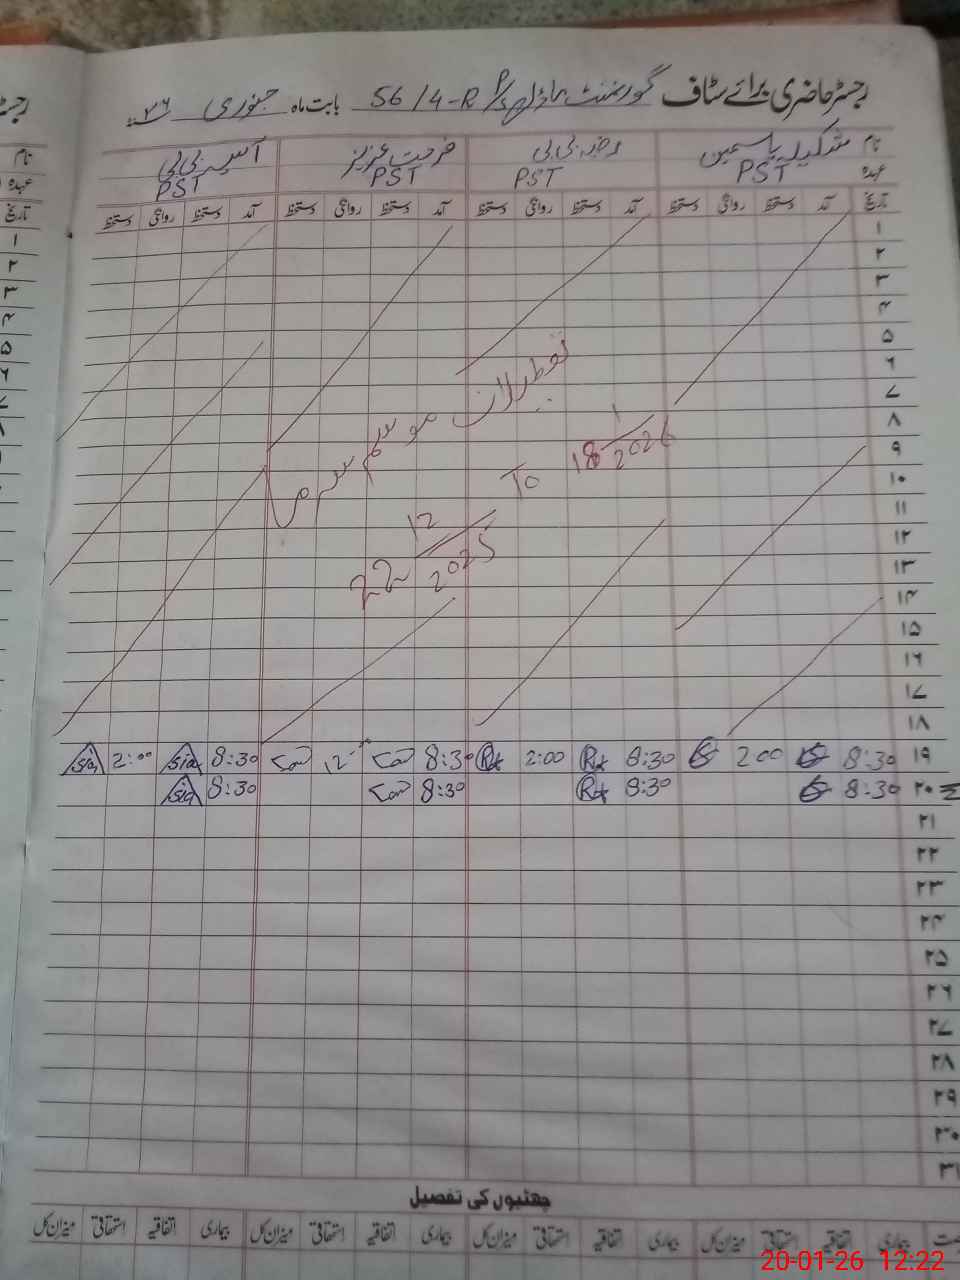 رجسٹر حاضری برائے سٹاف گورنمنٹ ماڈل P/S 56/4-R بابت ماہ جنوری ۲۶ء
نام شکیلہ یاسمین رضیہ بی بی فرحت عزیز آسیہ بی بی
عہدہ PST PST PST PST
تاریخ آمد دستخط روانگی دستخط آمد دستخط روانگی دستخط آمد دستخط روانگی دستخط آمد دستخط روانگی دستخط
۱
۲
۳
۴
۵
۶
۷
۸
۹
۱۰
۱۱
۱۲
۱۳
۱۴
۱۵
۱۶
۱۷
۱۸
تعطیلات موسم سرما
22 12/2025 To 18 1/2026
۱۹ 8:30 2:00 8:30 Rx 2:00 Rx 8:30 12:00 8:30 Sia 2:00 Sia
۲۰ 8:30 8:30 Rx 8:30 8:30 Sia
۲۱
۲۲
۲۳
۲۴
۲۵
۲۶
۲۷
۲۸
۲۹
۳۰
۳۱
چھٹیوں کی تفصیل
بیماری اتفاقیہ استحقاقی میزان کل بیماری اتفاقیہ استحقاقی میزان کل بیماری اتفاقیہ استحقاقی میزان کل بیماری اتفاقیہ استحقاقی میزان کل
20-01-26 12:22